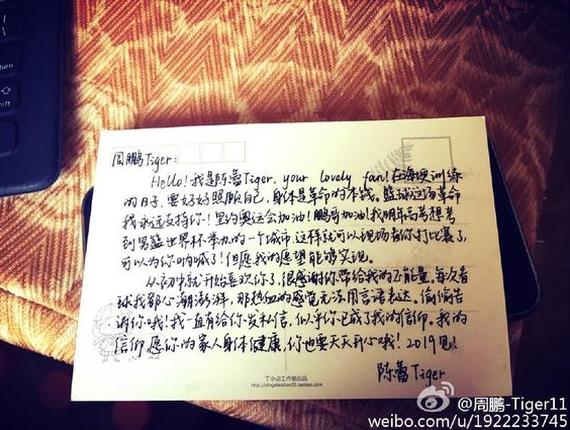 return
shift
周鹏Tiger：
Hello！我是陈蕾Tiger，your lovely fan！在海澳训练
的日子，要好好照顾自己，身体是革命的本钱。篮球这场革命
我永远支持你！里约奥运会加油！鹏哥加油！我明年高考想考
到男篮世界杯举办的一个城市，这样就可以现场看你打比赛了，
可以为你呐喊了！但愿我的愿望能够实现。
从初中就开始喜欢你了，很感谢你带给我的正能量。每次看
球我都心潮澎湃，那热血的感觉无法用言语表达。偷偷告
诉你哦！我一直有给你发私信，似乎你已成了我的信仰。我的
信仰愿你的家人身体健康，你也要天天开心哦！2019见！
陈蕾Tiger
丁小点工作室出品
@周鹏-Tiger11
weibo.com/u/1922233745